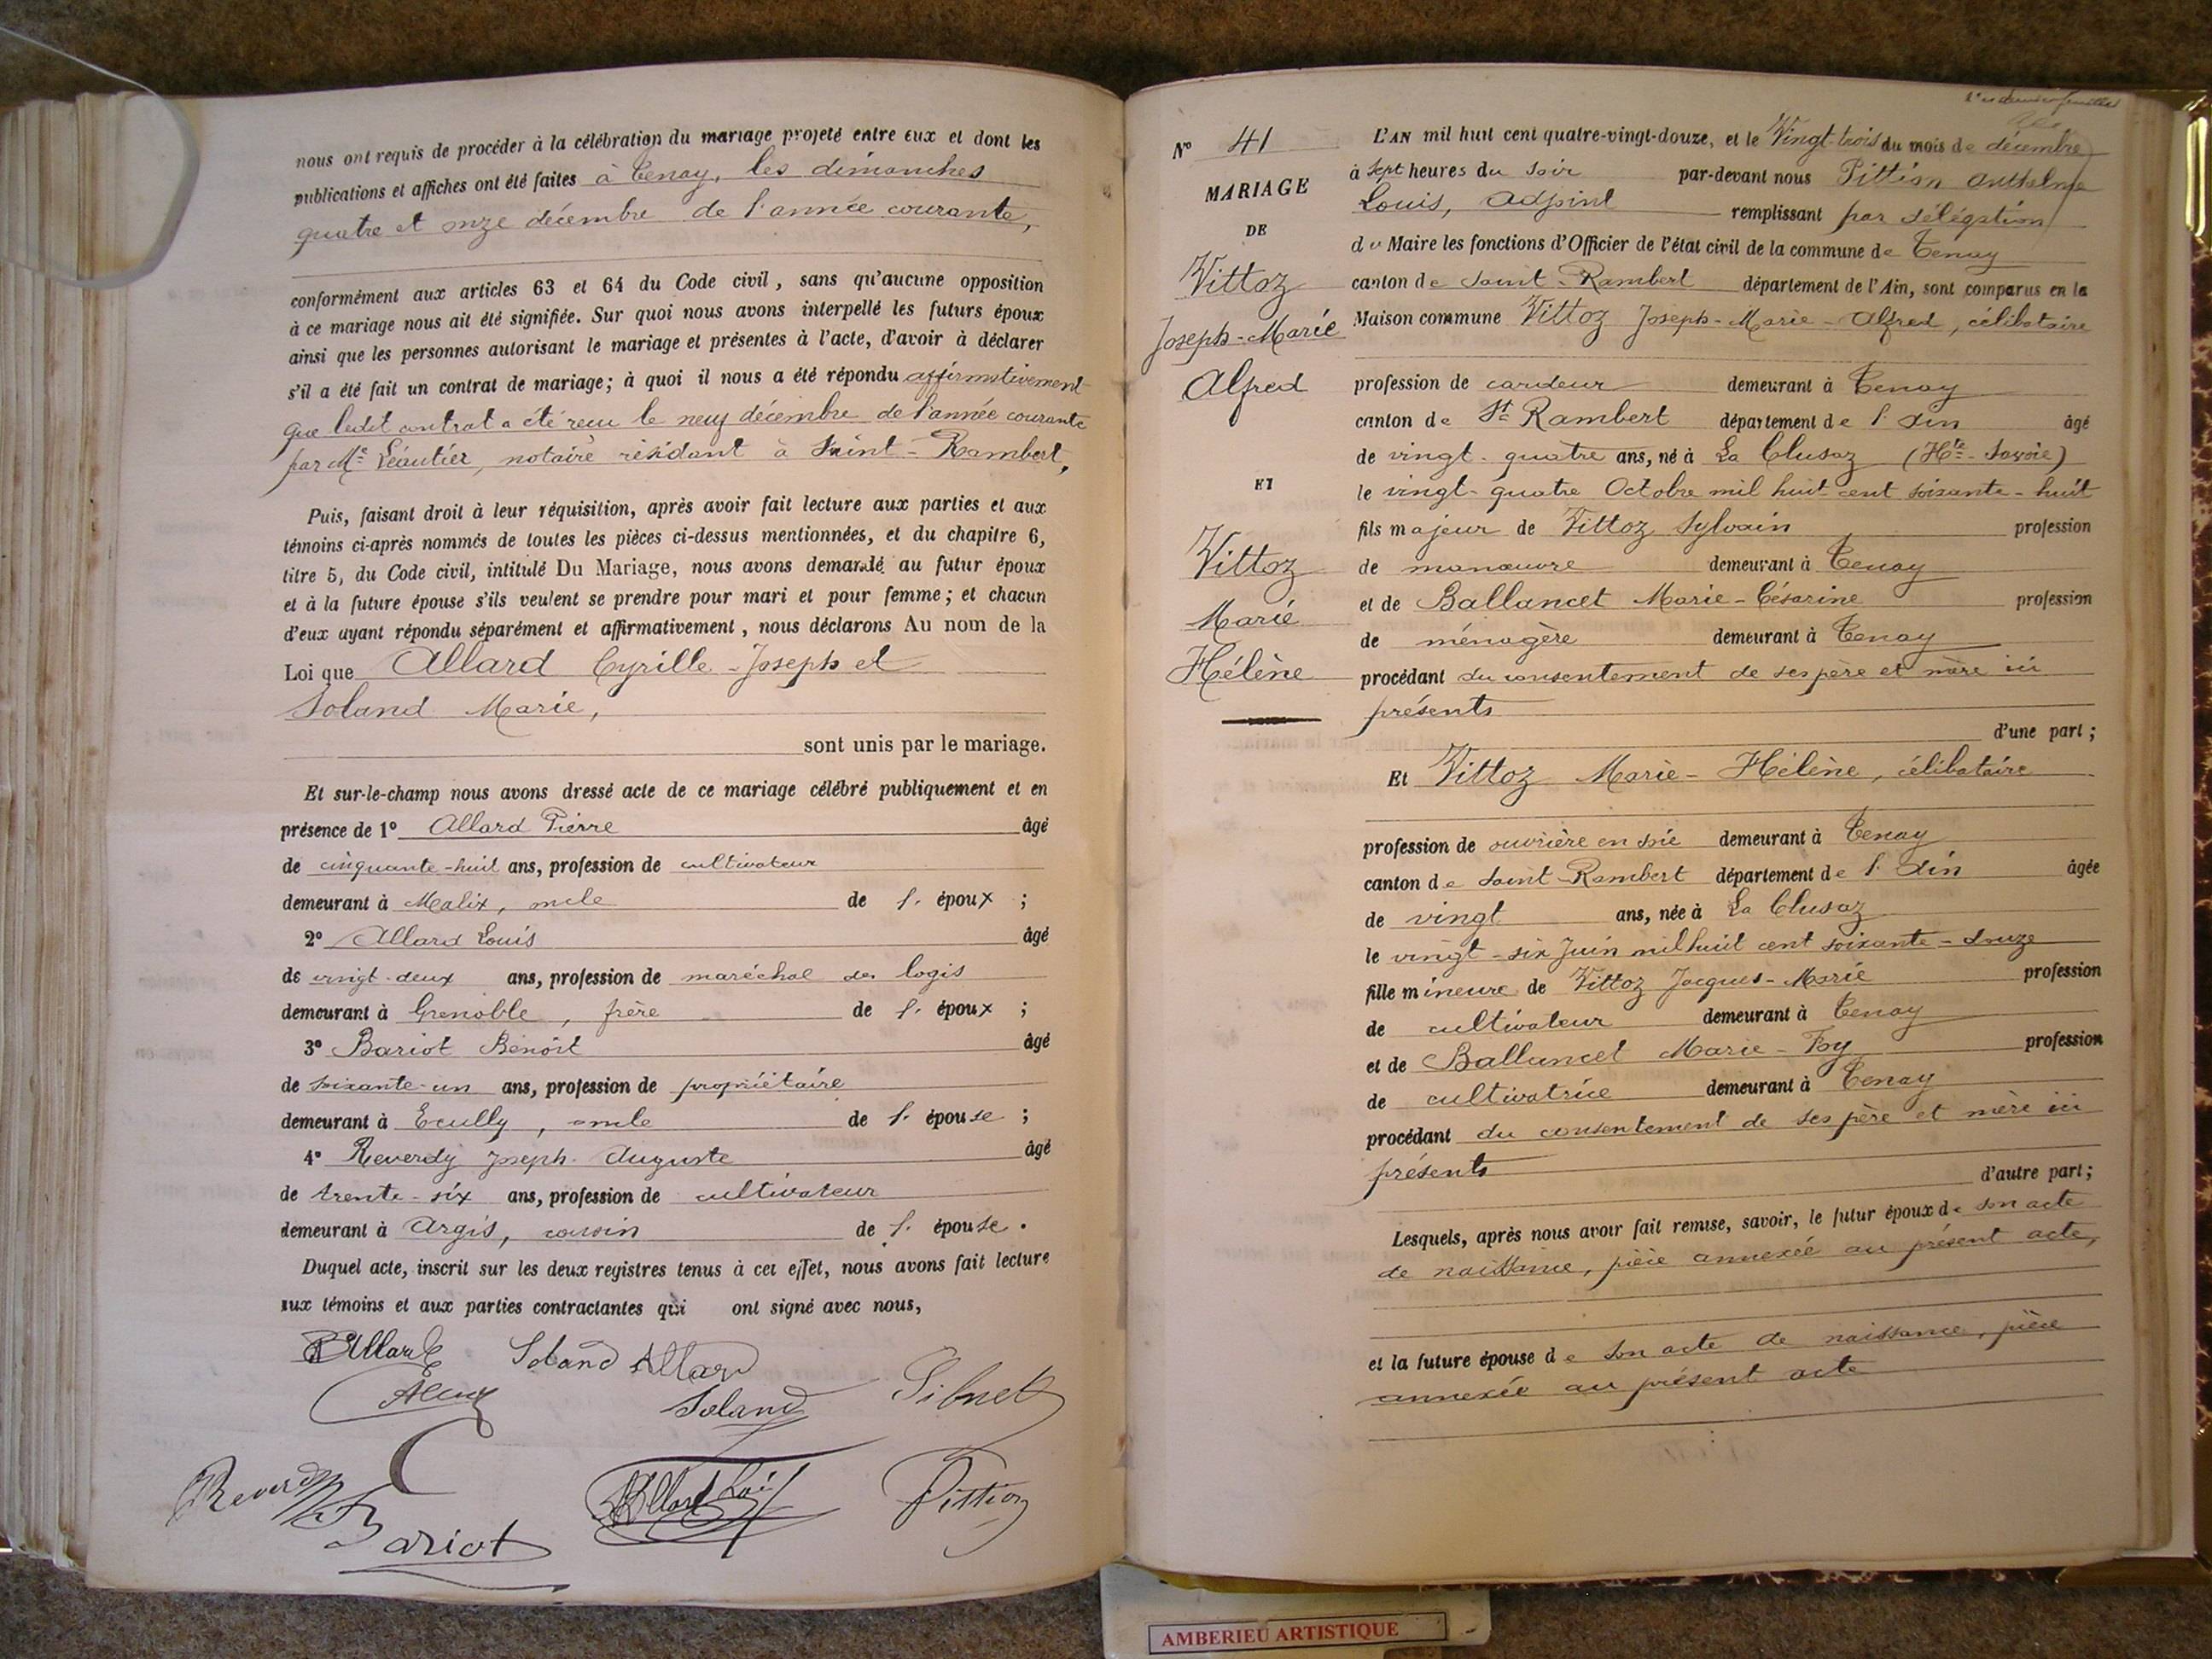 nous ont requis de procéder à la célébration du mariage projeté entre eux et dont les
publications et affiches ont été faites à Tenay, les dimanches
quatre et onze décembre de l'année courante,
conformément aux articles 63 et 64 du Code civil, sans qu'aucune opposition
à ce mariage nous ait été signifiée. Sur quoi nous avons interpellé les futurs époux
ainsi que les personnes autorisant le mariage et présentes à l'acte, d'avoir à déclarer
s'il a été fait un contrat de mariage; à quoi il nous a été répondu affirmativement
que ledit contrat a été reçu le neuf décembre de l'année courante
par Me Léautier, notaire résidant à Saint-Rambert,
Puis, faisant droit à leur réquisition, après avoir fait lecture aux parties et aux
témoins ci-après nommés de toutes les pièces ci-dessus mentionnées, et du chapitre 6,
titre 5, du Code civil, intitulé Du Mariage, nous avons demandé au futur époux
et à la future épouse s'ils veulent se prendre pour mari et pour femme; et chacun
d'eux ayant répondu séparément et affirmativement, nous déclarons Au nom de la
Loi que Allard Cyrille-Joseph et
Soland Marie,
sont unis par le mariage.
Et sur-le-champ nous avons dressé acte de ce mariage célébré publiquement et en
présence de 1° Allard Pierre âgé
de cinquante-huit ans, profession de cultivateur
demeurant à Malix, oncle de l' époux ;
2° Allard Louis âgé
de vingt-deux ans, profession de maréchal des logis
demeurant à Grenoble, frère de l' époux ;
3° Bariot Benoît âgé
de soixante-un ans, profession de propriétaire
demeurant à Ecully, oncle de l' épouse ;
4° Reverdy Joseph-Auguste âgé
de trente-six ans, profession de cultivateur
demeurant à Argis, cousin de l' épouse .
Duquel acte, inscrit sur les deux registres tenus à cet effet, nous avons fait lecture
aux témoins et aux parties contractantes qui ont signé avec nous,
Allard Soland Allard
Soland
Reverdy
Bariot Allard Pittion
N° 41
MARIAGE
DE
Vittoz
Joseph-Marie
Alfred
ET
Vittoz
Marie
Hélène
L'AN mil huit cent quatre-vingt-douze, et le Vingt-trois du mois de décembre
à sept heures du soir par-devant nous Pittion Anthelme
Louis, Adjoint remplissant par délégation
du Maire les fonctions d'Officier de l'état civil de la commune de Tenay
canton de Saint-Rambert département de l'Ain, sont comparus en la
Maison commune Vittoz Joseph-Marie-Alfred, célibataire
profession de cardeur demeurant à Tenay
canton de St Rambert département de l'Ain âgé
de vingt-quatre ans, né à La Clusaz (Hte-Savoie)
le vingt-quatre Octobre mil huit cent soixante-huit
fils majeur de Vittoz Sylvain profession
de manœuvre demeurant à Tenay
et de Ballancet Marie-Césarine profession
de ménagère demeurant à Tenay
procédant du consentement de ses père et mère ici
présents
d'une part ;
Et Vittoz Marie-Hélène, célibataire
profession de ouvrière en soie demeurant à Tenay
canton de Saint-Rambert département de l'Ain âgée
de vingt ans, née à La Clusaz
le vingt-six Juin mil huit cent soixante-douze
fille mineure de Vittoz Jacques-Marie profession
de cultivateur demeurant à Tenay
et de Ballancet Marie-Foy profession
de cultivatrice demeurant à Tenay
procédant du consentement de ses père et mère ici
présents
d'autre part ;
Lesquels, après nous avoir fait remise, savoir, le futur époux de son acte
de naissance, pièce annexée au présent acte,
et la future épouse de son acte de naissance, pièce
annexée au présent acte
AMBERIEU ARTISTIQUE